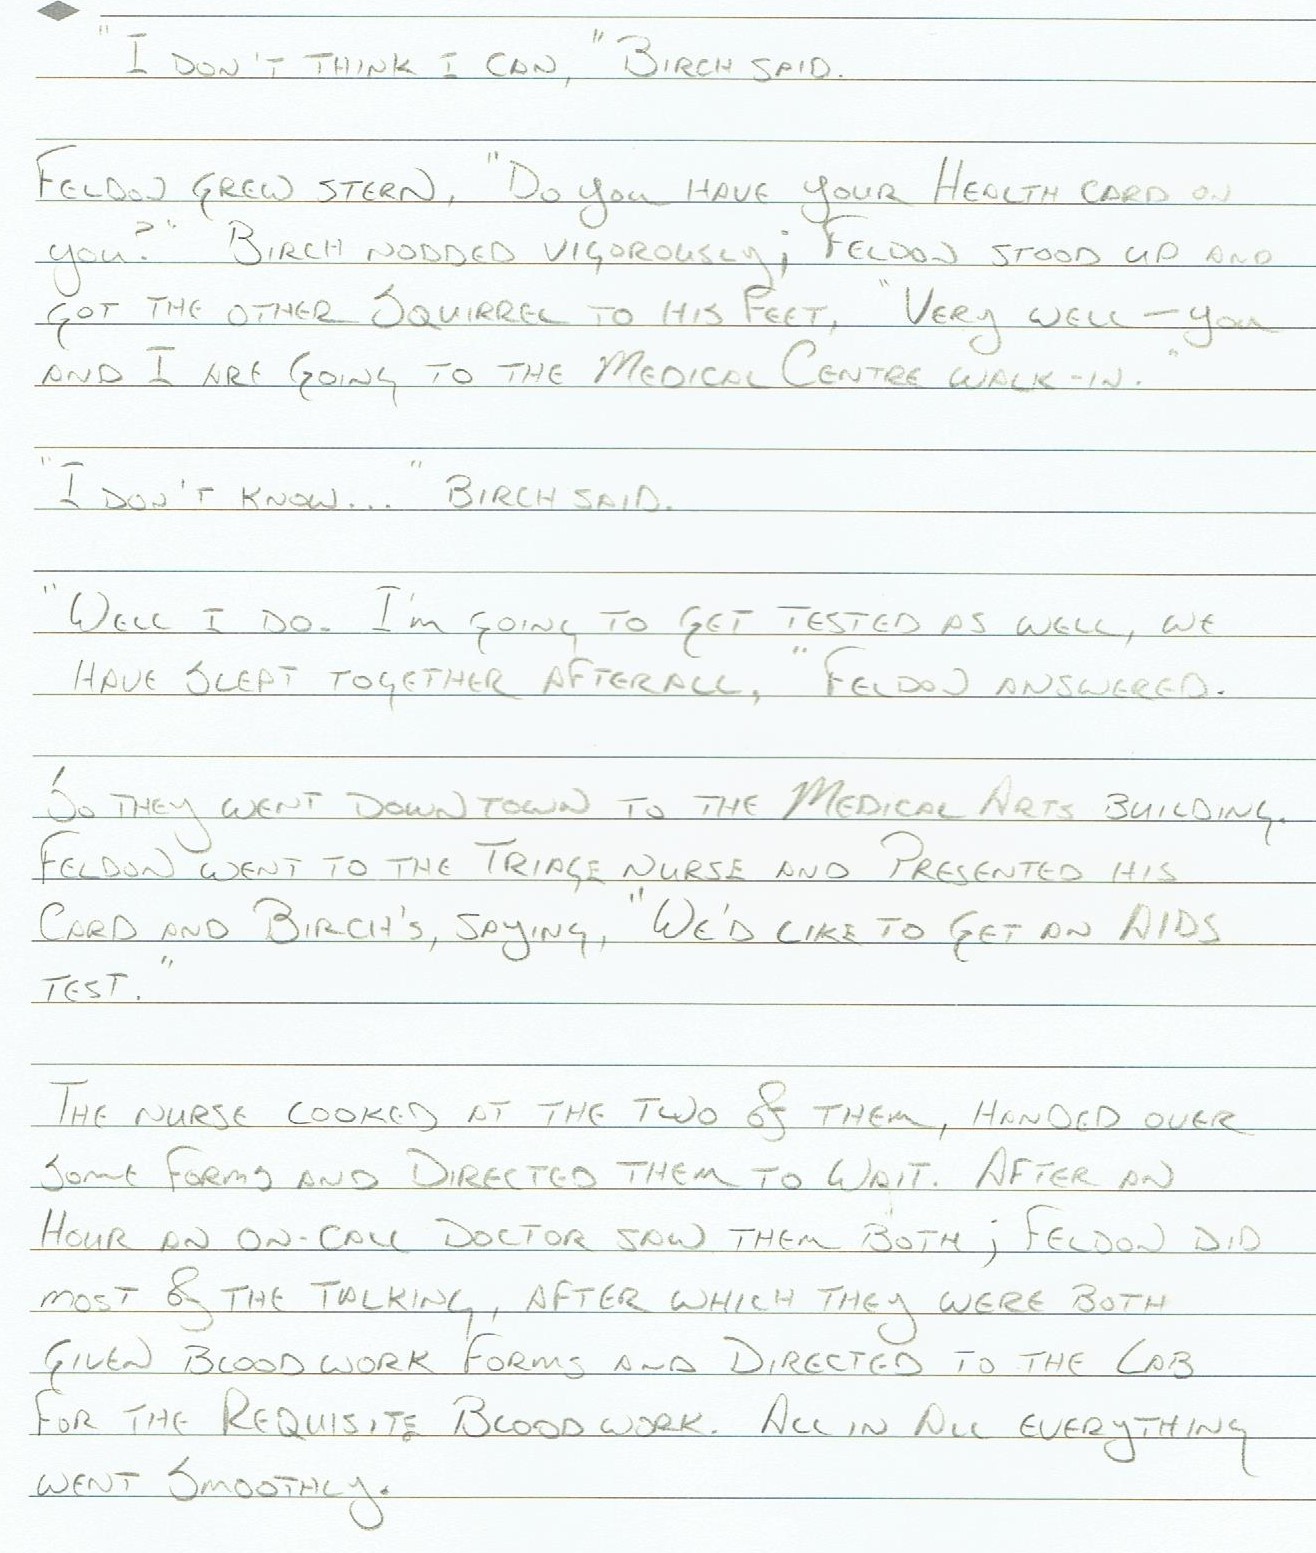 "I don't think I can," Birch said.
Feldon grew stern, "Do you have your Health card on
you?" Birch nodded vigorously; Feldon stood up and
got the other Squirrel to his feet, "Very well — you
and I are going to the Medical Centre walk-in."
"I don't know..." Birch said.
"Well I do. I'm going to get tested as well, we
have slept together afterall," Feldon answered.
So they went downtown to the Medical Arts building.
Feldon went to the Triage nurse and Presented his
Card and Birch's, saying, "We'd like to get an AIDS
test."
The nurse looked at the two of them, handed over
some forms and Directed them to Wait. After an
Hour an on-call Doctor saw them Both; Feldon did
most of the talking, after which they were both
given Bloodwork forms and Directed to the Lab
for the Requisite Bloodwork. All in All everything
went smoothly.